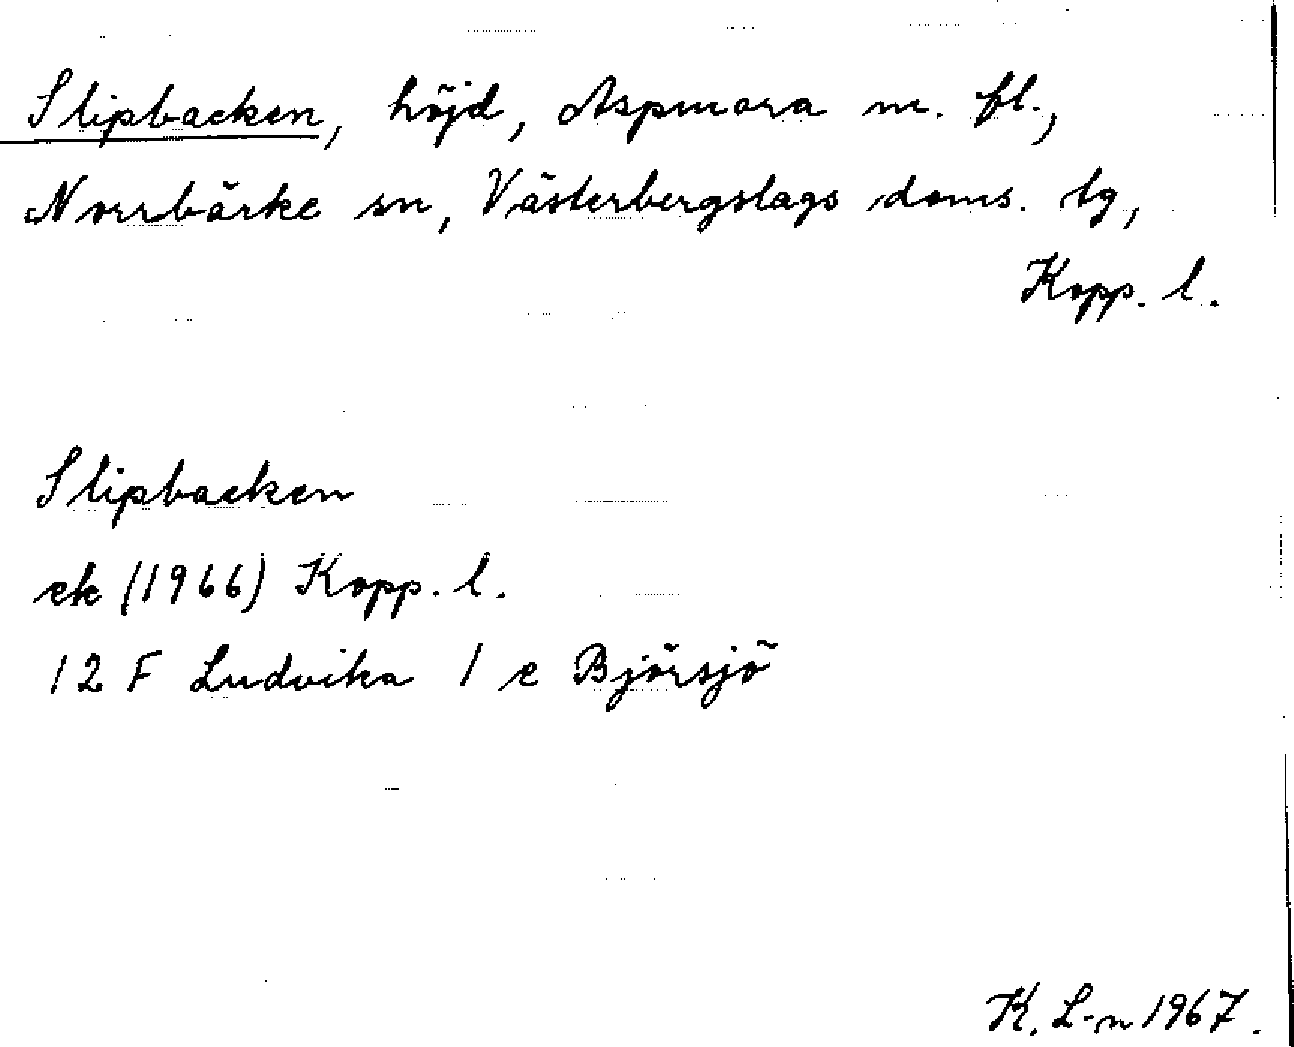 Slipbacken, höjd, Aspmora m. fl.,
Norrbärke sn, Västerbergslags doms. tg,
Kopp. l.
Slipbacken
ek (1966) Kopp. l.
12 F Ludvika 1 e Björsjö
K. L-n 1967.